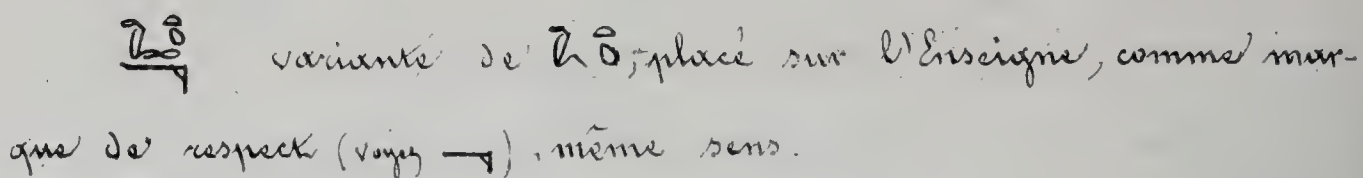 variante de , placé sur l'Enseigne, comme mar-
que de respect (voyez ) . même sens.